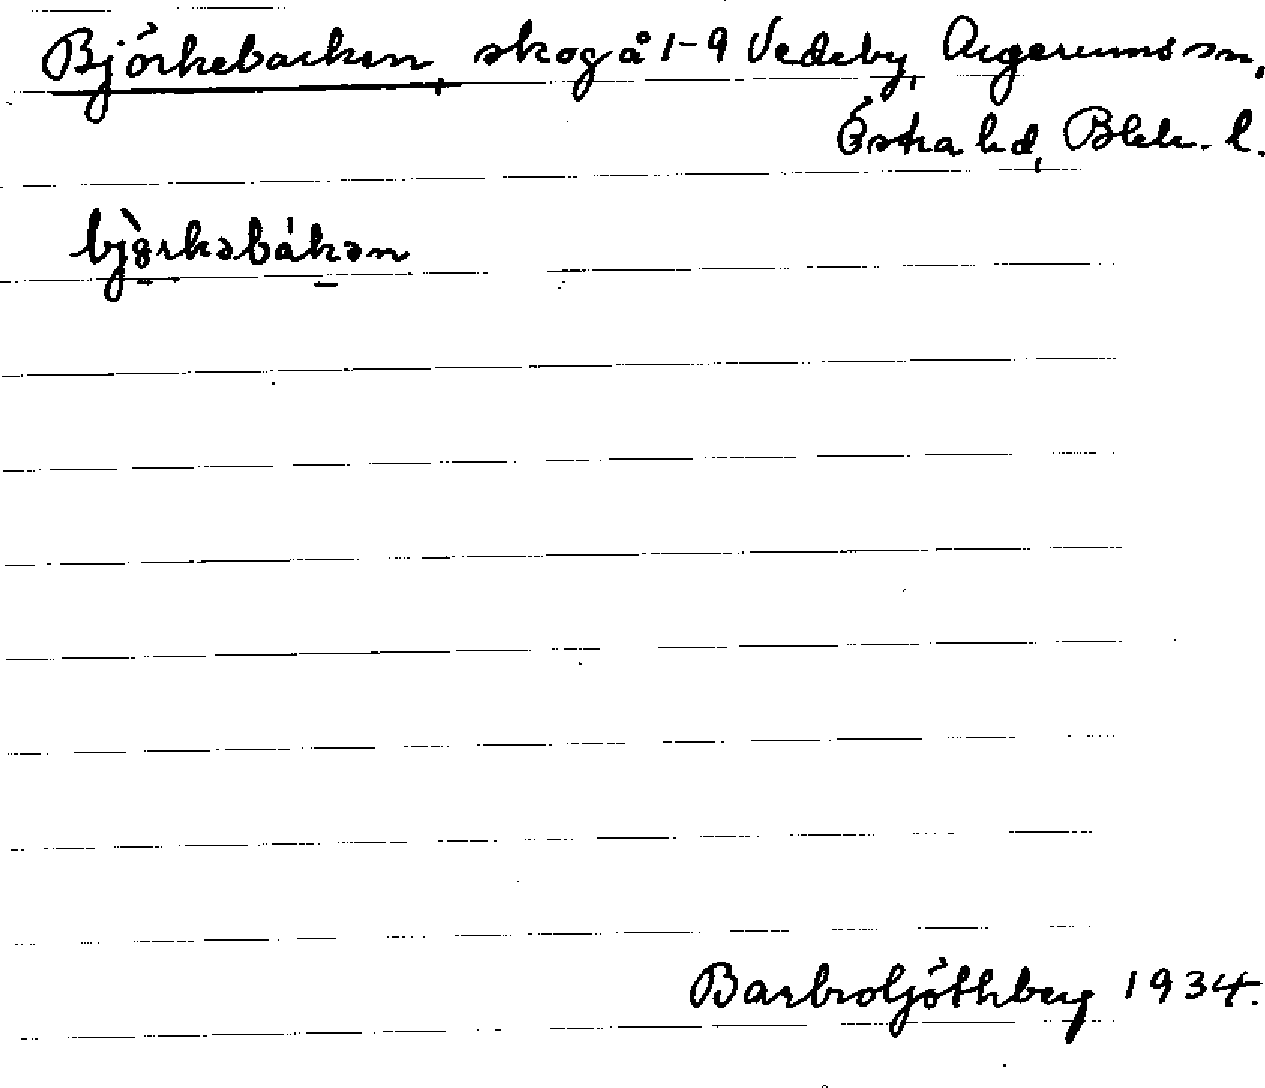 Björkebacken, skog å 1-9 Vedeby, Augerums sn,
Östra hd, Blek. l.
bjò̤rkəbákən
Barbro Ljöthberg 1934.